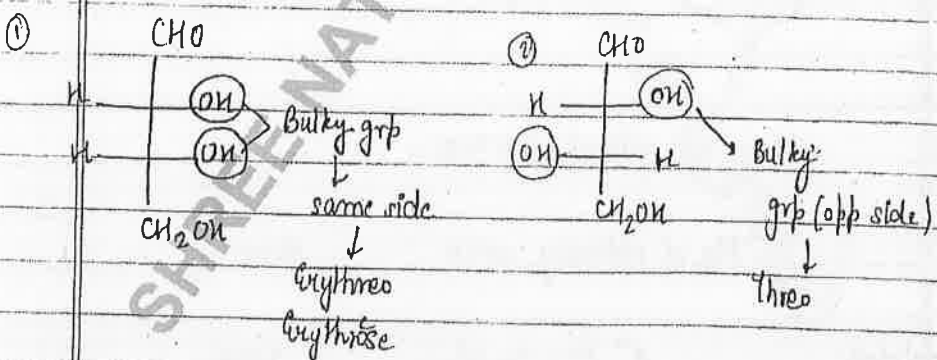 ①
CHO
H OH
H OH
CH₂OH
Bulky grp
↓
same side
↓
Erythreo
Erythrose
②
CHO
H OH
OH H
CH₂OH
Bulky
grp (opp side)
↓
Threo
SHREE NAT